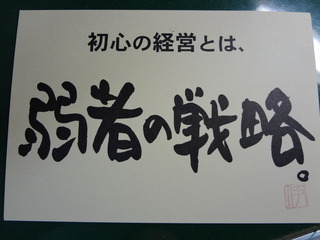 初心の経営とは、
弱者の戦略。